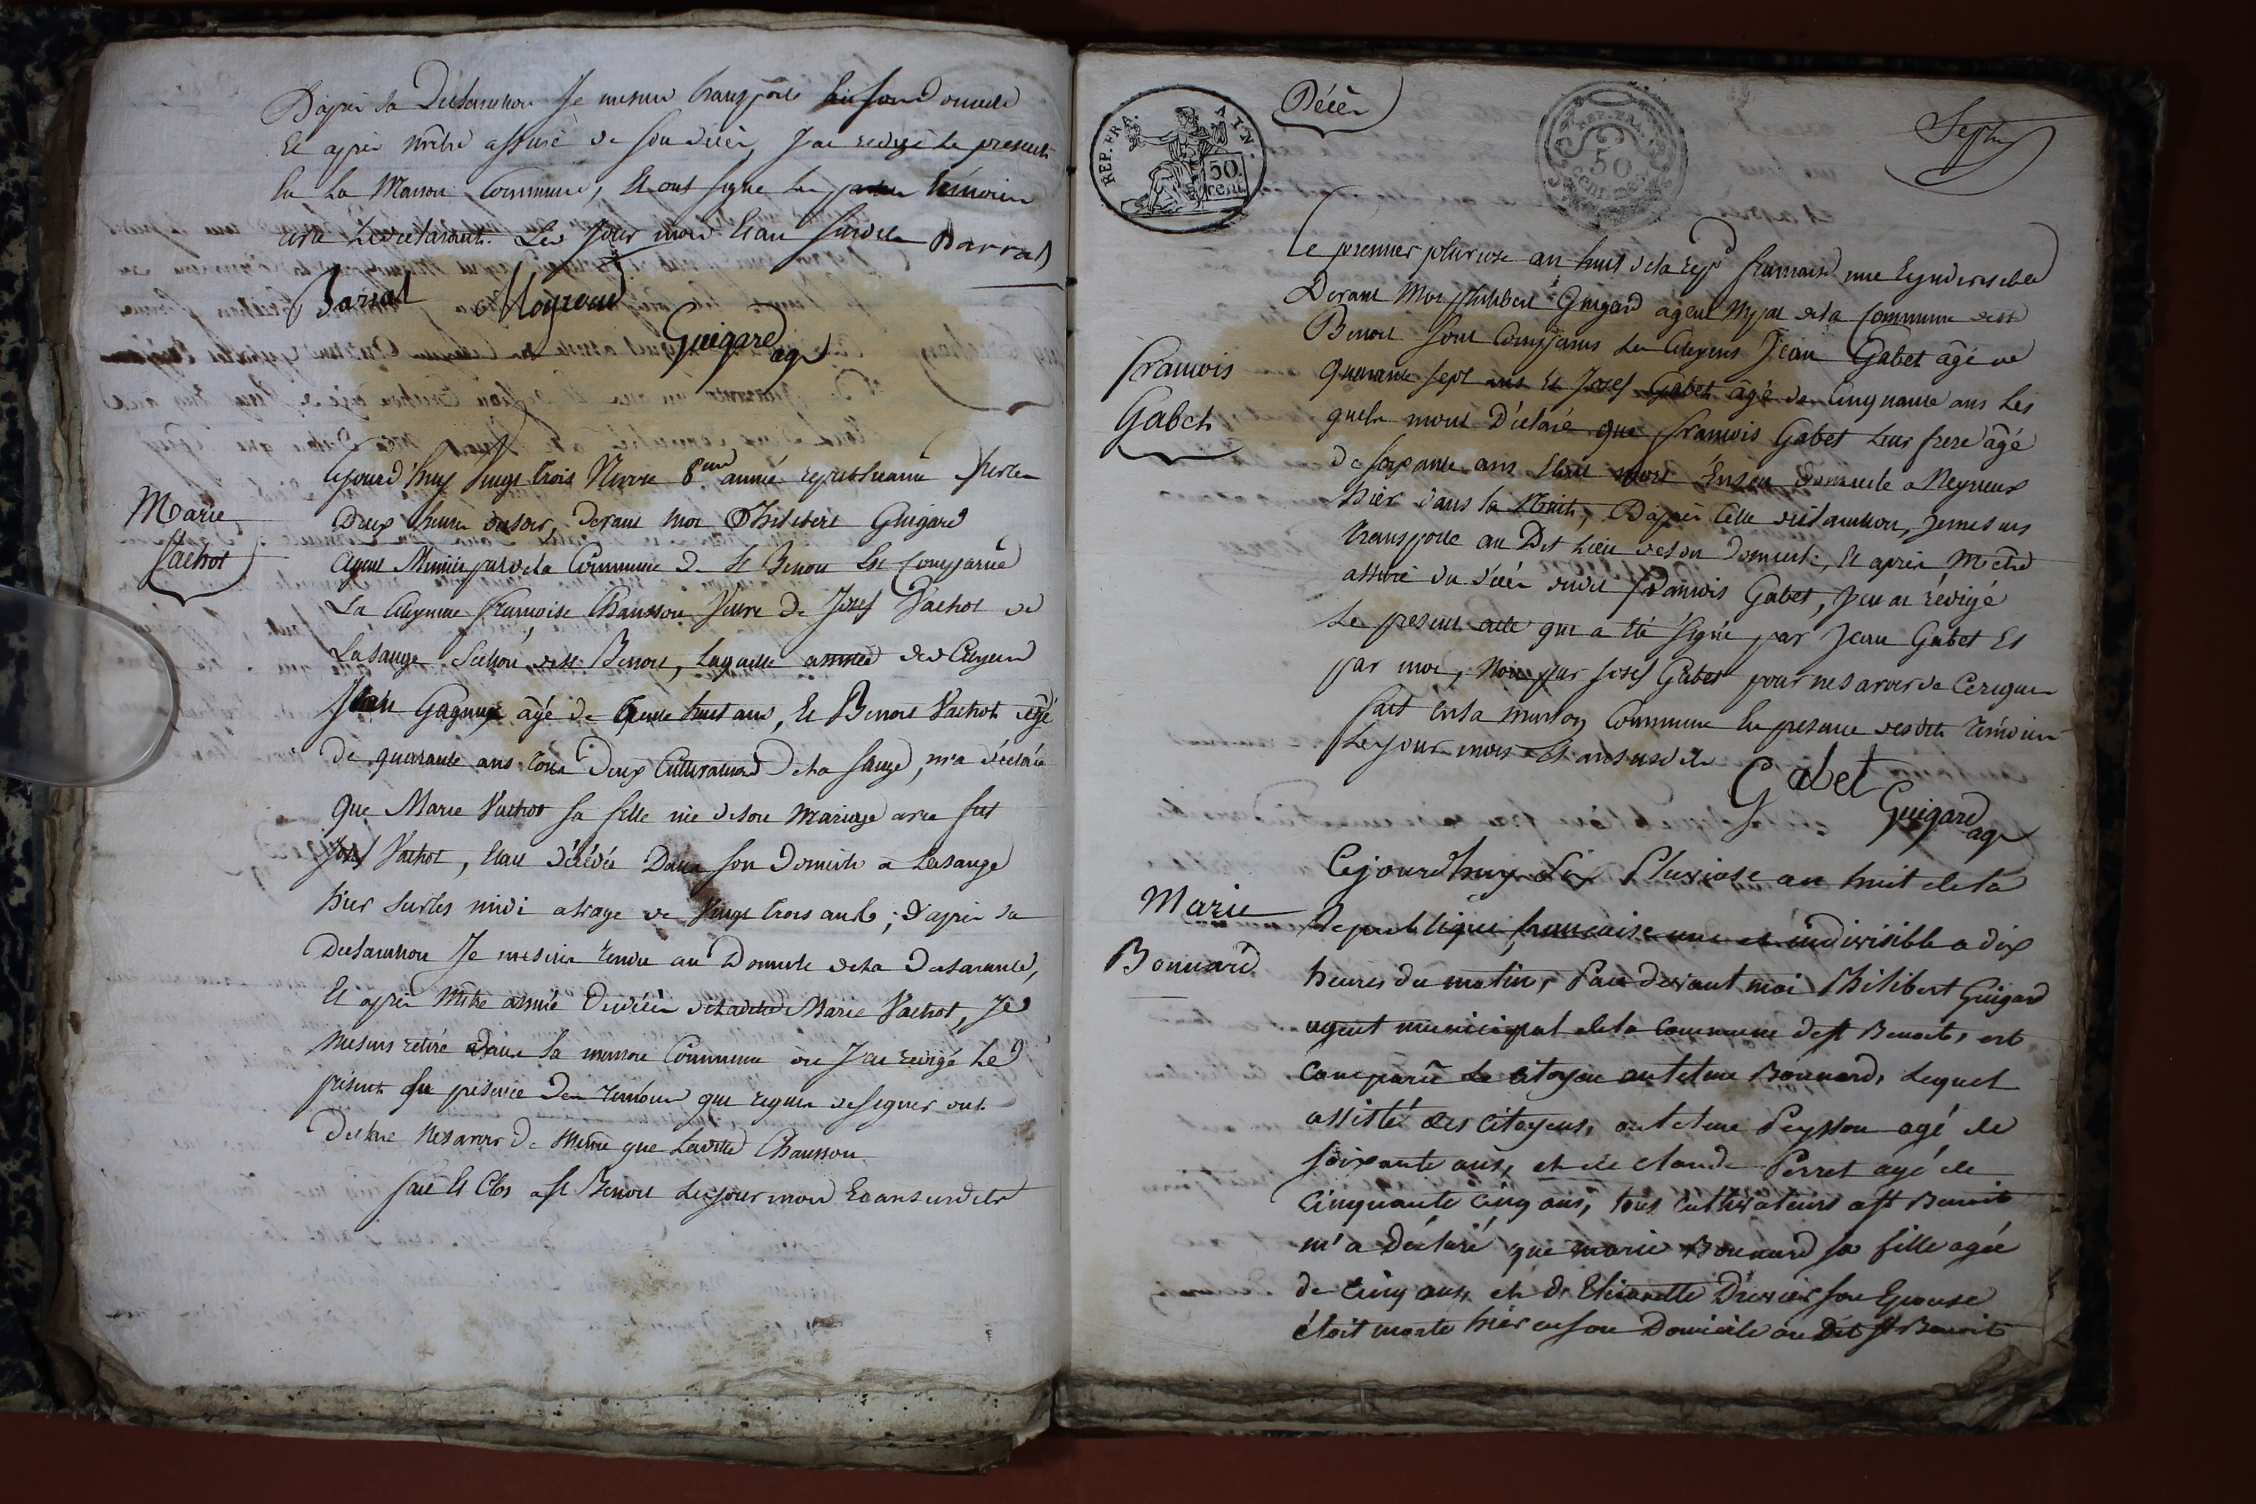 D'après sa Déclaration Je me suis transporté en son Domicile
Et après m'être assuré de son décès, J'ai rédigé le présent
En La Maison Commune, Et ont signé les témoins
avec le déclarant. Les Jour mois Et an susdits Barral
Barral Moyroud
Guigard
agt
Marie
Vachot
Cejourd'huy vingt trois Nivose 8eme année republicaine sur les
Deux heures du soir, devant moi Philibert Guigard
agent Municipal de la Commune de St Benoit Est Comparüe
La Citoyenne françoise Chausson Veuve De Josef Vachot de
Lasauge Section de St Benoit, Laquelle assistée des Citoyens
Jean Gagneux âgé de trente huit ans, Et Benoit Vachot âgé
de quarante ans tous Deux Cultivateurs de la sauge, m'a déclaré
que Marie Vachot sa fille née de son Mariage avec fut
Josef Vachot, Etait décédée Dans son Domicile a Lasauge
hier sur les midi a l'age de Vingt trois ans ; d'après sa
Declaration Je me suis rendu au Domicile de la Declarante,
Et après M'être assuré Du décès de ladite Marie Vachot, Je
me suis retiré dans la maison Commune ou J'ai redigé Le
présent En présence Des témoins qui requis de signer ont
Declaré Ne savoir De Même que Ladite Chausson
fait Et Clos a St Benoit Les jour mois Et an susdits
REP. FRA.
50
cent.
Décès
REP. FRA.
50
centimes
Sept
Le premier pluviose an huit de la rep française une Et indivisible
Devant Moi Philibert Guigard agent Mpal de la Commune de St
Benoit sont Comparus les Citoyens Jean Gabet âgé de
quarante sept ans Et Josef Gabet âgé de Cinquante ans Les
quels m'ont Déclaré que françois Gabet leur frere âgé
de soixante ans Etait mort En son Domicile a Neyrieux
hier dans la Nuit, D'après Cette declaration, Je me suis
transporté au Dit Lieu de son Domicile, Et après M'être
assuré du décès dudit françois Gabet, J'en ai rédigé
Le present acte qui a été signé par Jean Gabet Et
par moi, Non par Josef Gabet pour ne savoir de Ce requis
fait En la maison Commune En presence desdits témoins
Les jour mois Et an susdits
Gabet
Guigard
agt
François
Gabet
Marie
Bonnard
Cejourd'huy dix Pluviose an huit de la
Republique française une et indivisible a dix
heures du matin, Par devant moi Philibert Guigard
agent municipal de la Commune de St Benoit, est
Comparû Le Citoyen antelme Bonnard, Lequel
assisté des Citoyens, antelme Peysson agé de
soixante ans, et de claude Perret âgé de
cinquante cinq ans, tous cultivateurs a St Benoit
m'a déclaré que marie Bonnard sa fille agée
de cinq ans, et de son Epouse
étoit morte hier en son Domicile au Dit St Benoit